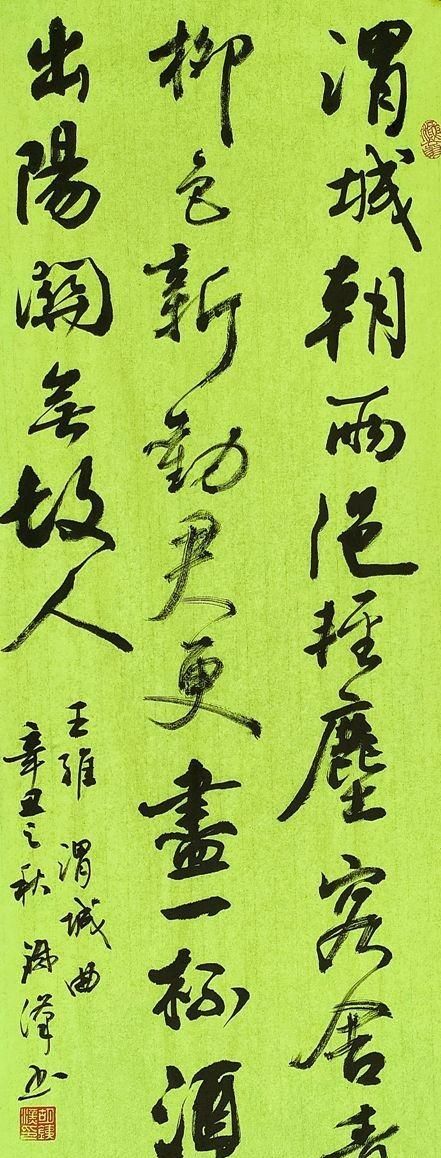 渭城朝雨浥輕塵客舍青
柳色新勸君更盡一杯酒
出陽關無故人
王維 渭城曲
辛丑之秋